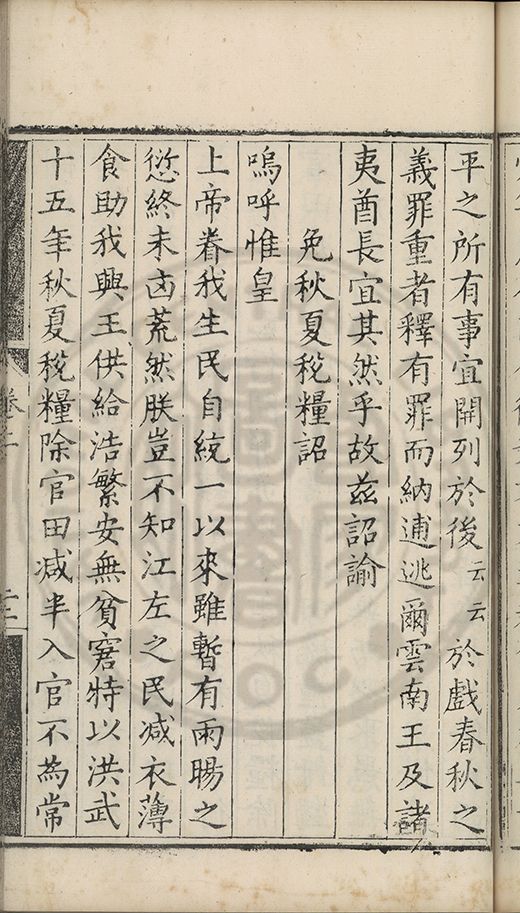 平之所有事宜開列於後云云於戲春秋之
義罪重者釋有罪而納逋逃爾雲南王及諸
夷酋長宜其然乎故茲詔諭
免秋夏稅糧詔
嗚呼惟皇
上帝眷我生民自統一以來雖暫有雨暘之
愆終未凶荒然朕豈不知江左之民減衣薄
食助我興王供給浩繁安無貧窘特以洪武
十五年秋夏稅糧除官田減半入官不為常
卷二